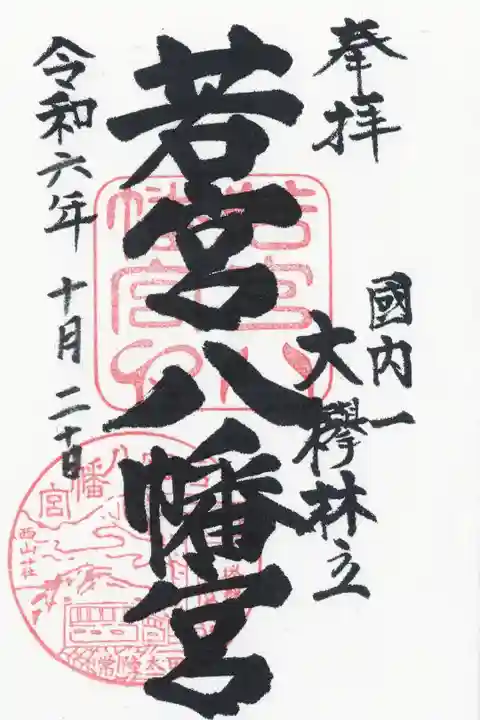 奉拝
國内一
大欅林立
若宮八幡宮
令和六年 十月 二十日
若宮八幡宮
西山荘